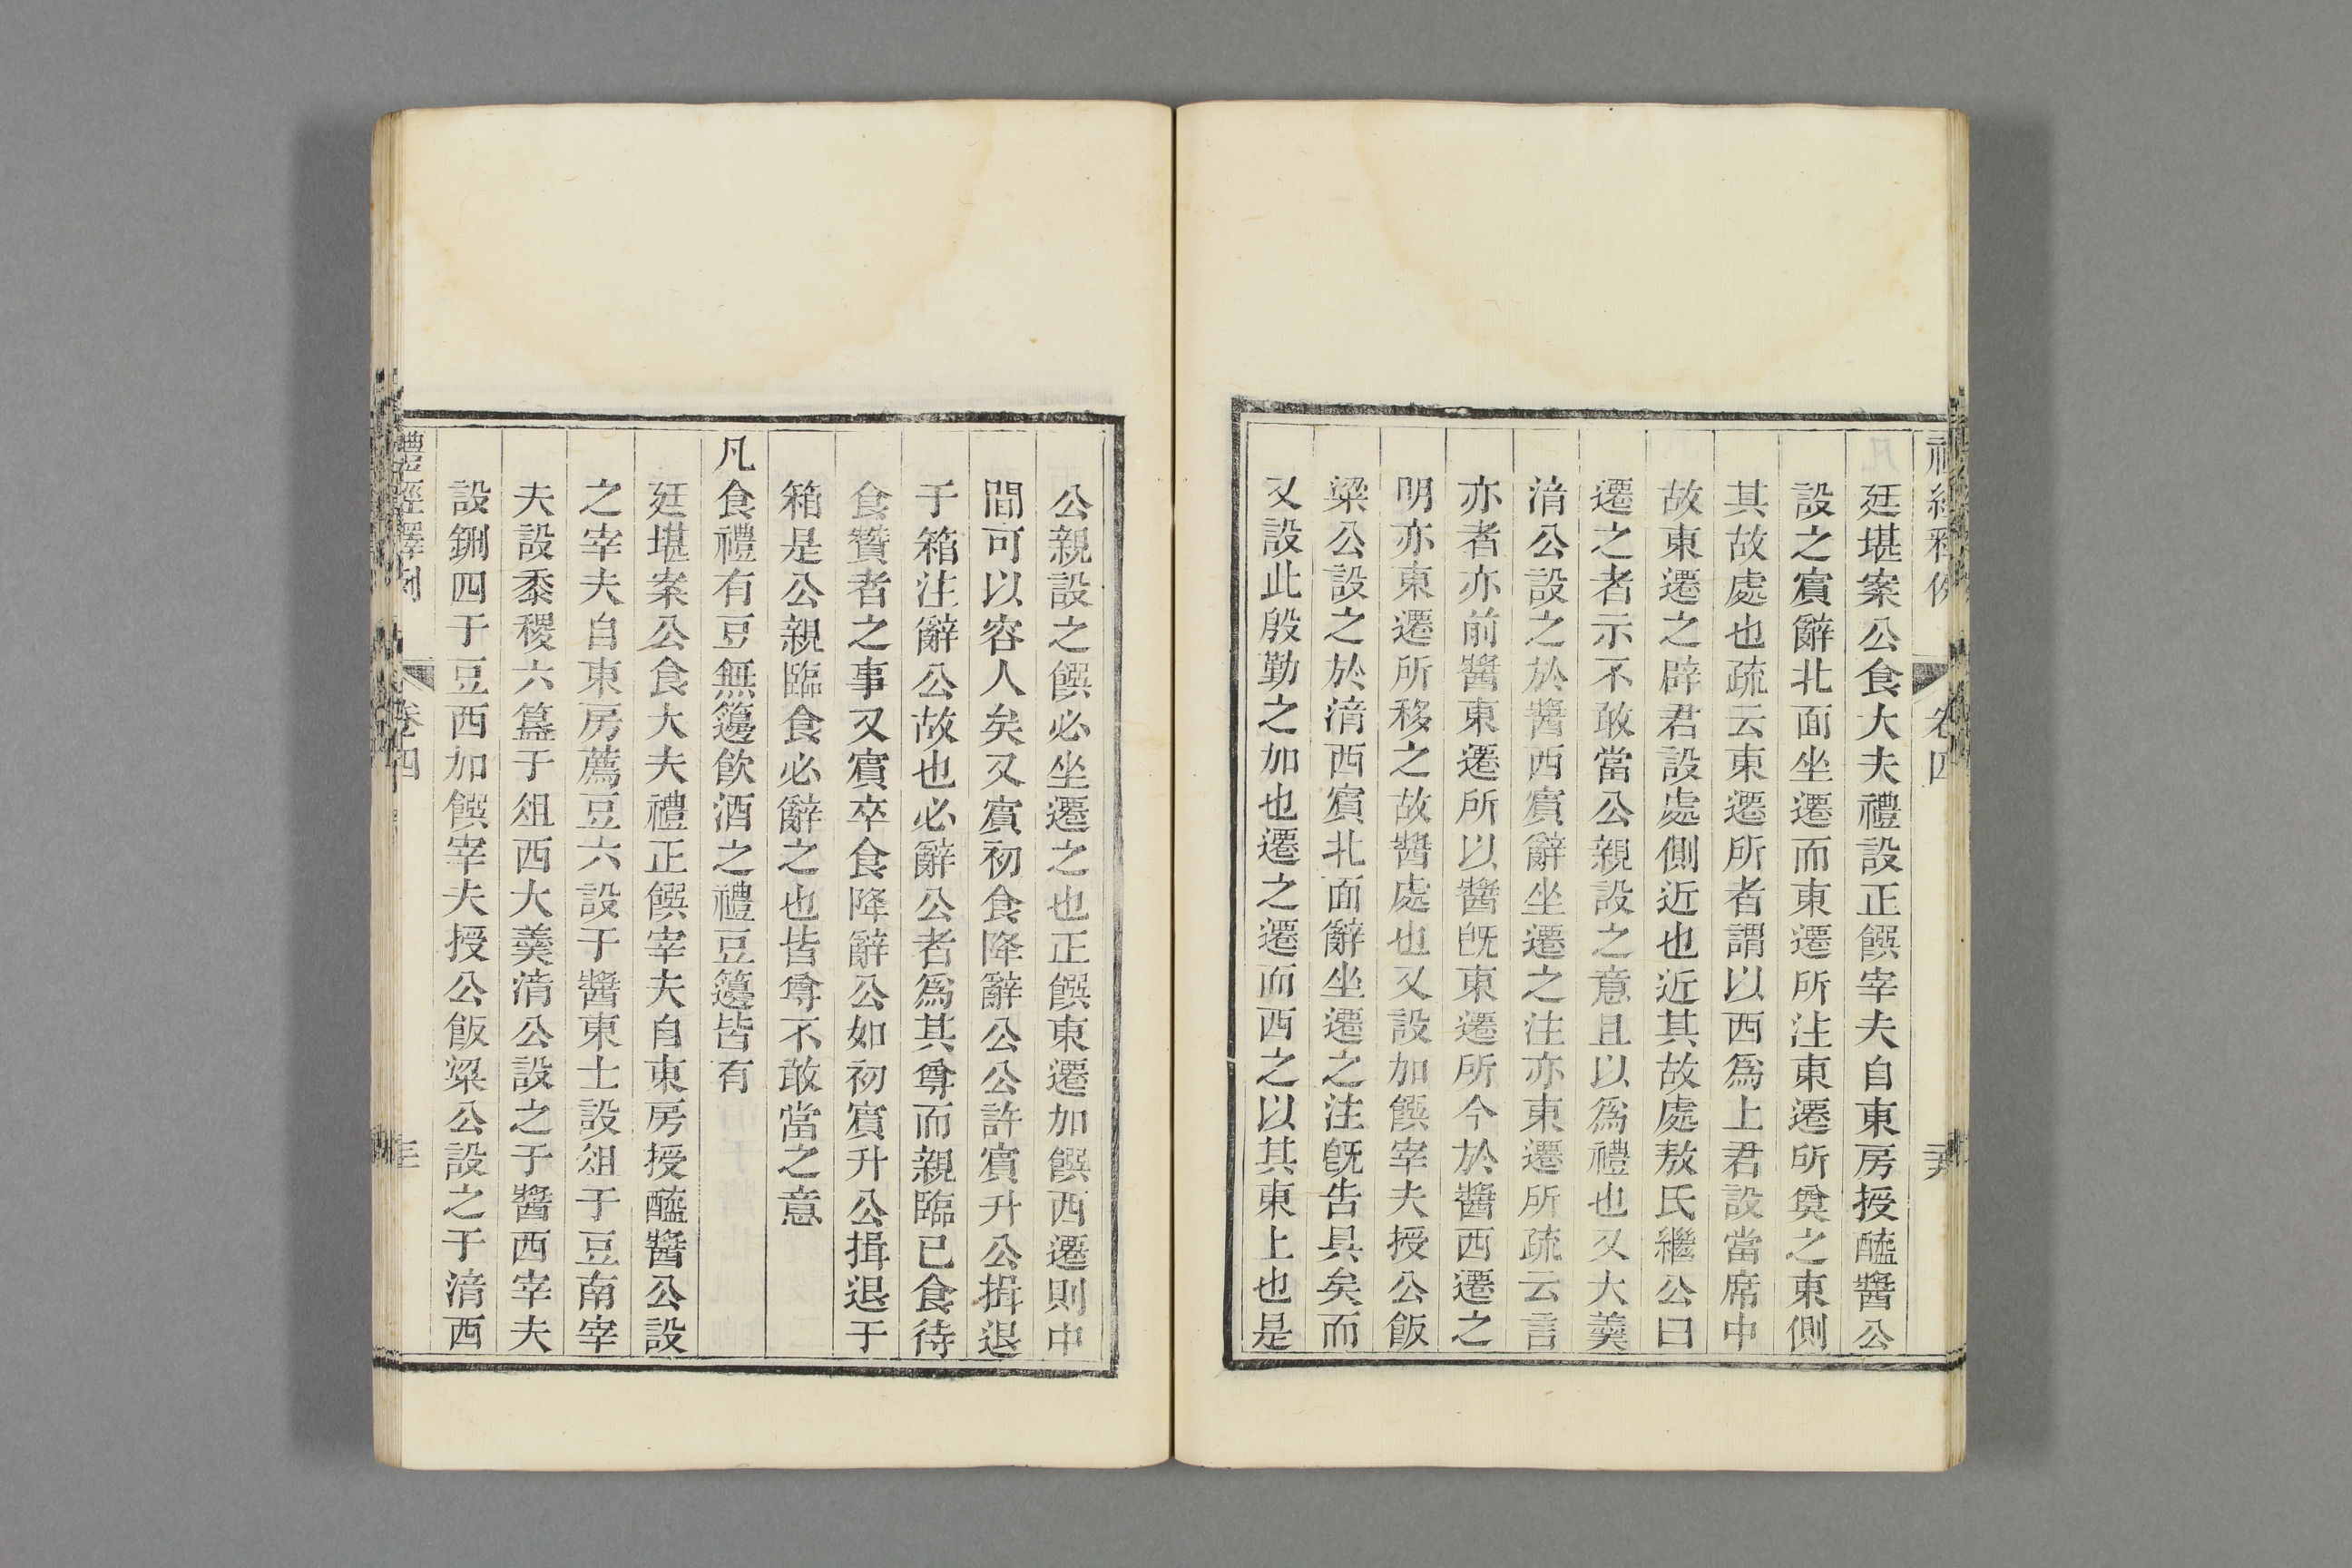 廷堪案公食大夫禮設正饌宰夫自東房授醯醬公
設之賓辭北面坐遷而東遷所注東遷所奠之東側
其故處也疏云東遷所者謂以西爲上君設當席中
故東遷之辟君設處側近也近其故處敖氏繼公曰
遷之者示不敢當公親設之意且以爲禮也又大羹
湆公設之於醬西賓辭坐遷之注亦東遷所疏云言
亦者亦前醬東遷所以醬旣東遷所今於醬西遷之
明亦東遷所移之故醬處也又設加饌宰夫授公飯
粱公設之於湆西賓北面辭坐遷之注旣告具矣而
又設此殷勤之加也遷之遷而西之以其東上也是
公親設之饌必坐遷之也正饌東遷加饌西遷則中
間可以容人矣又賓初食降辭公公許賓升公揖退
于箱注辭公故也必辭公者爲其尊而親臨已食待
食贊者之事又賓卒食降辭公如初賓升公揖退于
箱是公親臨食必辭之也皆尊不敢當之意
凡食禮有豆無籩飲酒之禮豆籩皆有
廷堪案公食大夫禮正饌宰夫自東房授醯醬公設
之宰夫自東房薦豆六設于醬東士設俎于豆南宰
夫設黍稷六簋于俎西大羹湆公設之于醬西宰夫
設鉶四于豆西加饌宰夫授公飯粱公設之于湆西
禮經釋例 卷四